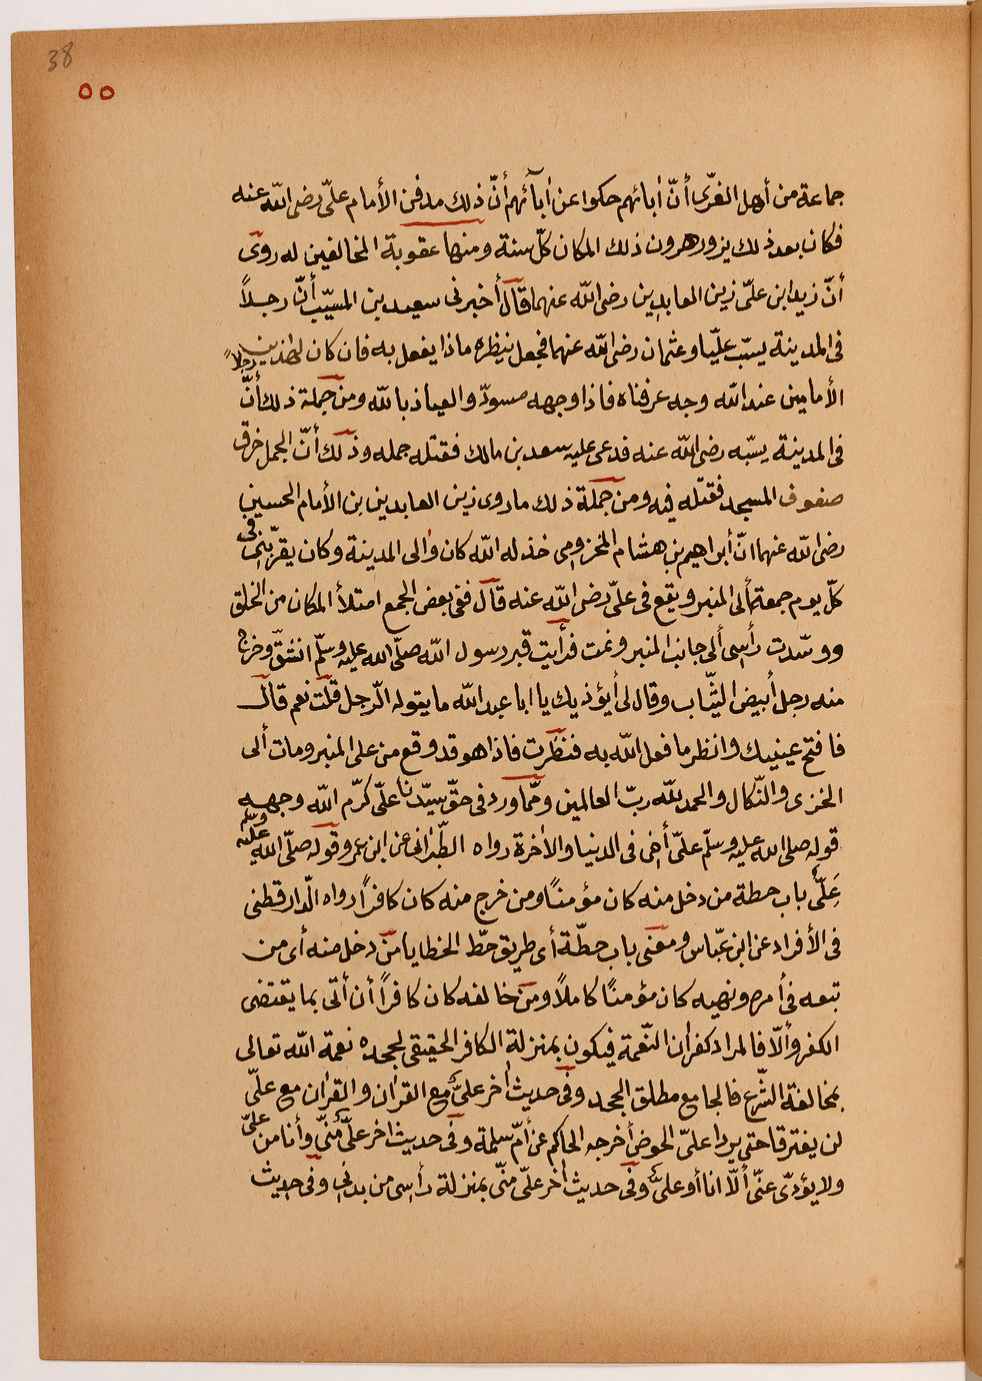 38
٥٥
جماعة من أهل الغرّى أنّ أبائهم حكوا عن أبآئهم أنّ ذلك مدفن الأمام علىّ رضى اللّه عنه
فكان بعد ذلك يزور هرون ذلك المكان كلّ سنة ومنها عقوبة المخالفين له روى
أنّ زيد ابن علىّ زين العابدين رضى اللّه عنهما قال أخبرنى سعيد بن المسيّب أنّ رجلاً
فى المدينة يسبّ عليّا وعثمان رضى اللّه عنهما فجعل ينظره ماذا يفعل به فان كان لهذين
الأمامين عند اللّه وجه عرفناه فاذا وجهه مسودّ والعياذ باللّه ومن جملة ذلك أنّ رجلاً
فى المدينة يسبّه رضى اللّه عنه فدعى عليه سعد بن مالك فقتله جمله وذلك أنّ الجمل خرق
صفوف المسجد فقتله فيه ومن جملة ذلك ما روى زين العابدين بن الأمام الحسين
رضى اللّه عنهما انّ أبراهيم بن هشام المخزومى خذله اللّه كان والى المدينة وكان يقرّبنى فى
كلّ يوم جمعة ألى المنبر ويقع فى علىّ رضى اللّه عنه قال ففى بعض الجمع امتلأ المكان من الخلق
ووسّدت رأسى ألى جانب المنبر ونمت فرأيت قبر رسول اللّه صلّى اللّه عليه وسلّم انشقّ وخرج
منه رجل أبيض الثّياب وقال لى أيؤذيك يا ابا عبد اللّه ما يقوله الرّجل قلت نعم قال
فافتح عينيك وانظر ما فعل اللّه به فنظرت فاذا هو قد وقع من على المنبر ومات ألى
الخزى والنّكال والحمد للّه ربّ العالمين وممّا ورد فى حقّ سيّدنا علىّ كرّم اللّه وجهه
قوله صلى اللّه عليه وسلّم علىّ أخى فى الدنيا والأخرة رواه الطّبرانى عن ابن عمر وقوله صلّى اللّه عليه وسلّم
عَلىّ باب حطة من دخل منه كان مؤمنًا ومن خرج منه كان كافرًا رواه الدّارقطنى
فى الأفراد عن ابن عبّاس ومعنى باب حطّة أى طريق حطّ الخطايا من دخل منه أى من
تبعه فى أمره ونهيه كان مؤمنًا كاملاً ومن خالفه كان كافرًا أن أتى بما يقتضى
الكفر وألّا فالمراد كفران النّعمة فيكون بمنزلة الكافر الحقيقى لجحده نعمة اللّه تعالى
بمخالفة الشّرع فالجامع مطلق الجحد وفى حديث أخر علىّ مع القرأن والقرأن مع علىّ
لن يفترقا حتى يردا علىّ الحوض أخرجه الحاكم عن أمّ سلمة وفى حديث اخر علىّ منّى وأنا من علىّ
ولا يؤدّى عنّى ألّا انا أو علىّ وفى حديث أخر علىّ منّى بمنزلة رأسى من بدنى وفى حديث